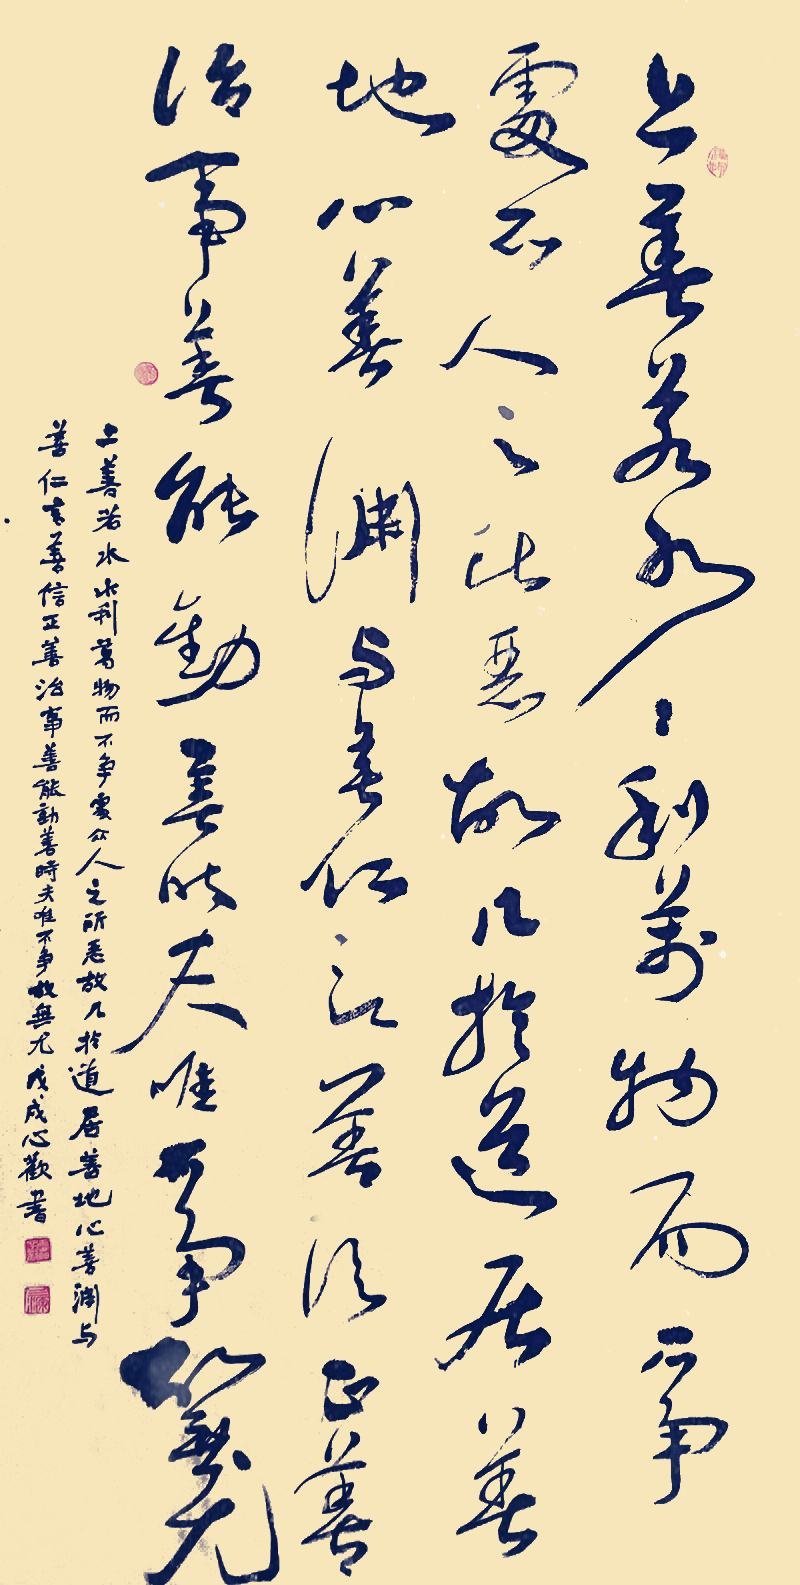 上善若水々利萬物而不争
處众人之所恶故几於道居善
地心善渊与善仁言善信正善
治事善能動善时夫唯不争故無尤
上善若水水利萬物而不争處众人之所恶故几於道居善地心善渊与
善仁言善信正善治事善能動善時夫唯不争故無尤戊戌心歡書